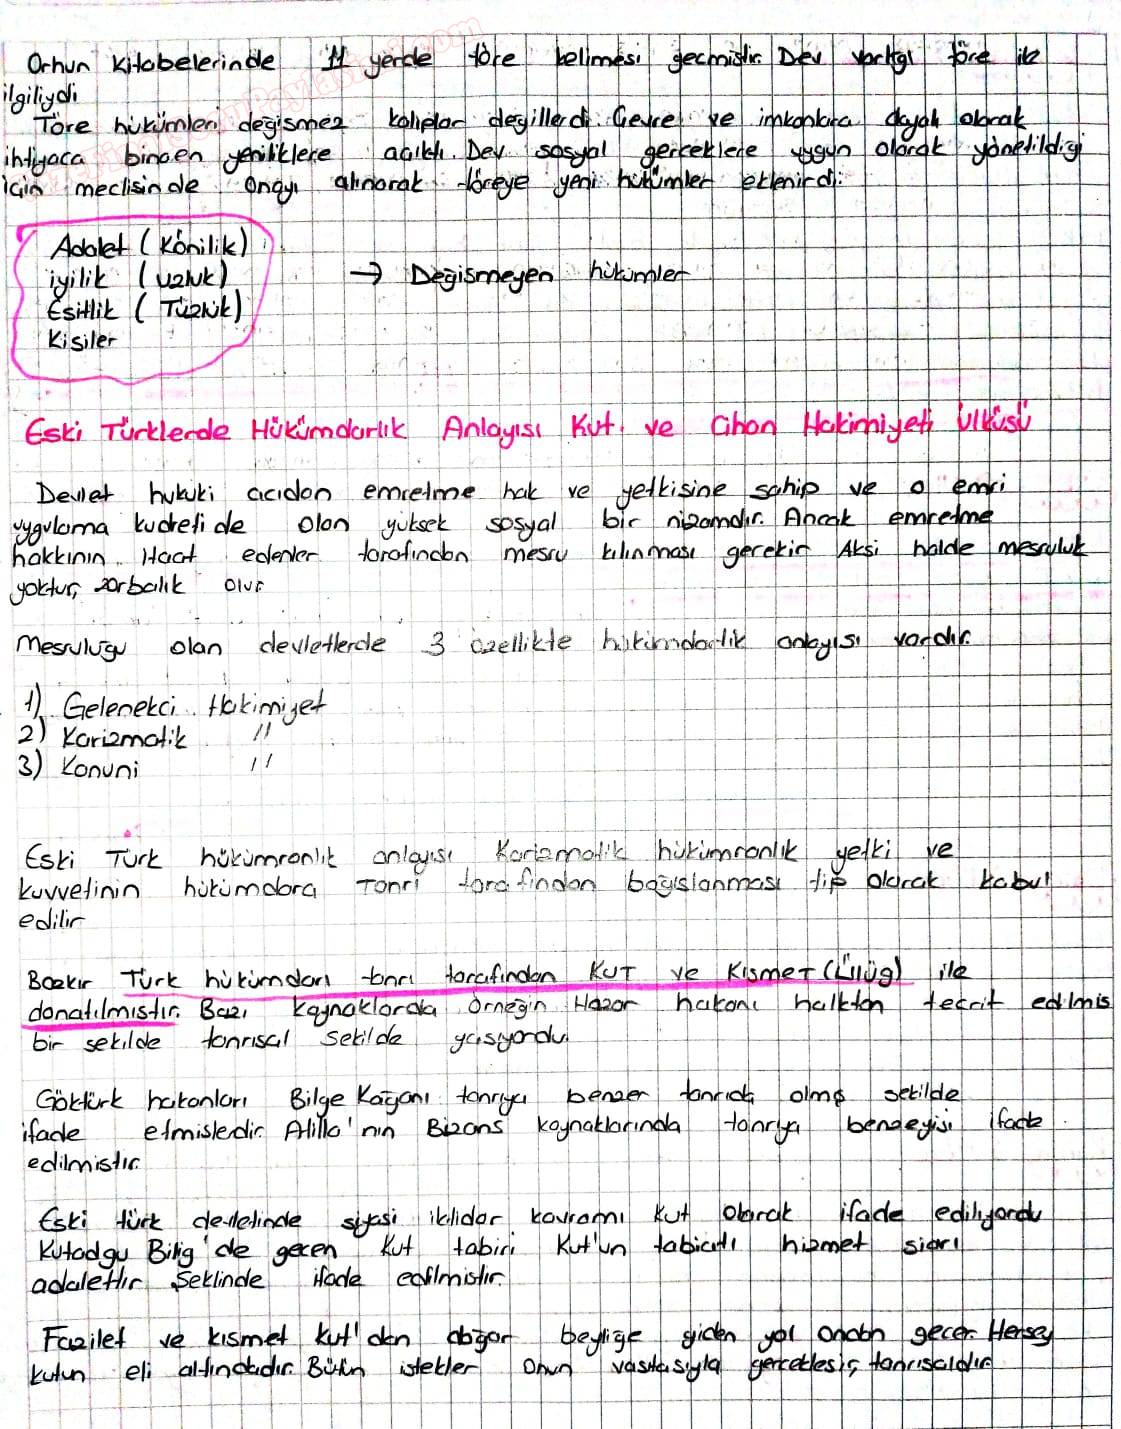 Orhun kitabelerinde 11 yerde töre kelimesi geçmiştir. Dev varlığı töre ile
ilgiliydi
Töre hükümleri değişmez kalıplar değillerdi. Çevre ve imkanlara dayalı olarak
ihtiyaca binaen yeniliklere açıktı. Dev sosyal gerçeklere uygun olarak yönetildiği
için meclisinde onayı alınarak töreye yeni hükümler eklenirdi.
Adalet (Könilik)
iyilik (uzluk)
Eşitlik (Tüzlük)
Kişiler
→ Değişmeyen hükümler
Eski Türklerde Hükümdarlık Anlayışı Kut ve Cihan Hakimiyeti Ülküsü
Devlet hukuki açıdan emretme hak ve yetkisine sahip ve o emri
uygulama kudreti de olan yüksek sosyal bir nizamdır. Ancak emretme
hakkının itaat edenler tarafından meşru kılınması gerekir Aksi halde meşruluk
yoktur, zorbalık olur.
Meşruluğu olan devletlerde 3 özellikte hükümdarlık anlayışı vardır.
1) Gelenekçi Hakimiyet
2) Karizmatik "
3) Kanuni "
Eski Türk hükümranlık anlayışı Karizmatik hükümranlık yetki ve
kuvvetinin hükümdara Tanrı tarafından bağışlanması tip olarak kabul
edilir
Bozkır Türk hükümdarı tanrı tarafından KUT ve Kısmet (Ülüg) ile
donatılmıştır. Bazı kaynaklarda örneğin Hazar hakanı halktan tecrit edilmiş
bir şekilde tanrısal şekilde yaşıyordu.
Göktürk hakanları Bilge Kağanı tanrıya benzer tanrıda olmş şekilde
ifade etmişlerdir. Atilla'nın Bizans kaynaklarında tanrıya benzeyişi ifade
edilmiştir.
Eski türk devletinde siyasi iktidar kavramı kut olarak ifade ediliyordu
Kutadgu Bilig'de geçen kut tabiri Kut'un tabiatı hizmet şiarı
adalettir şeklinde ifade edilmiştir.
Fazilet ve kısmet kut'dan doğar beyliğe giden yol ondan geçer. Herşey
kutun eli altındadır. Bütün istekler onun vasıtasıyla gerçekleşir, tanrısaldır.